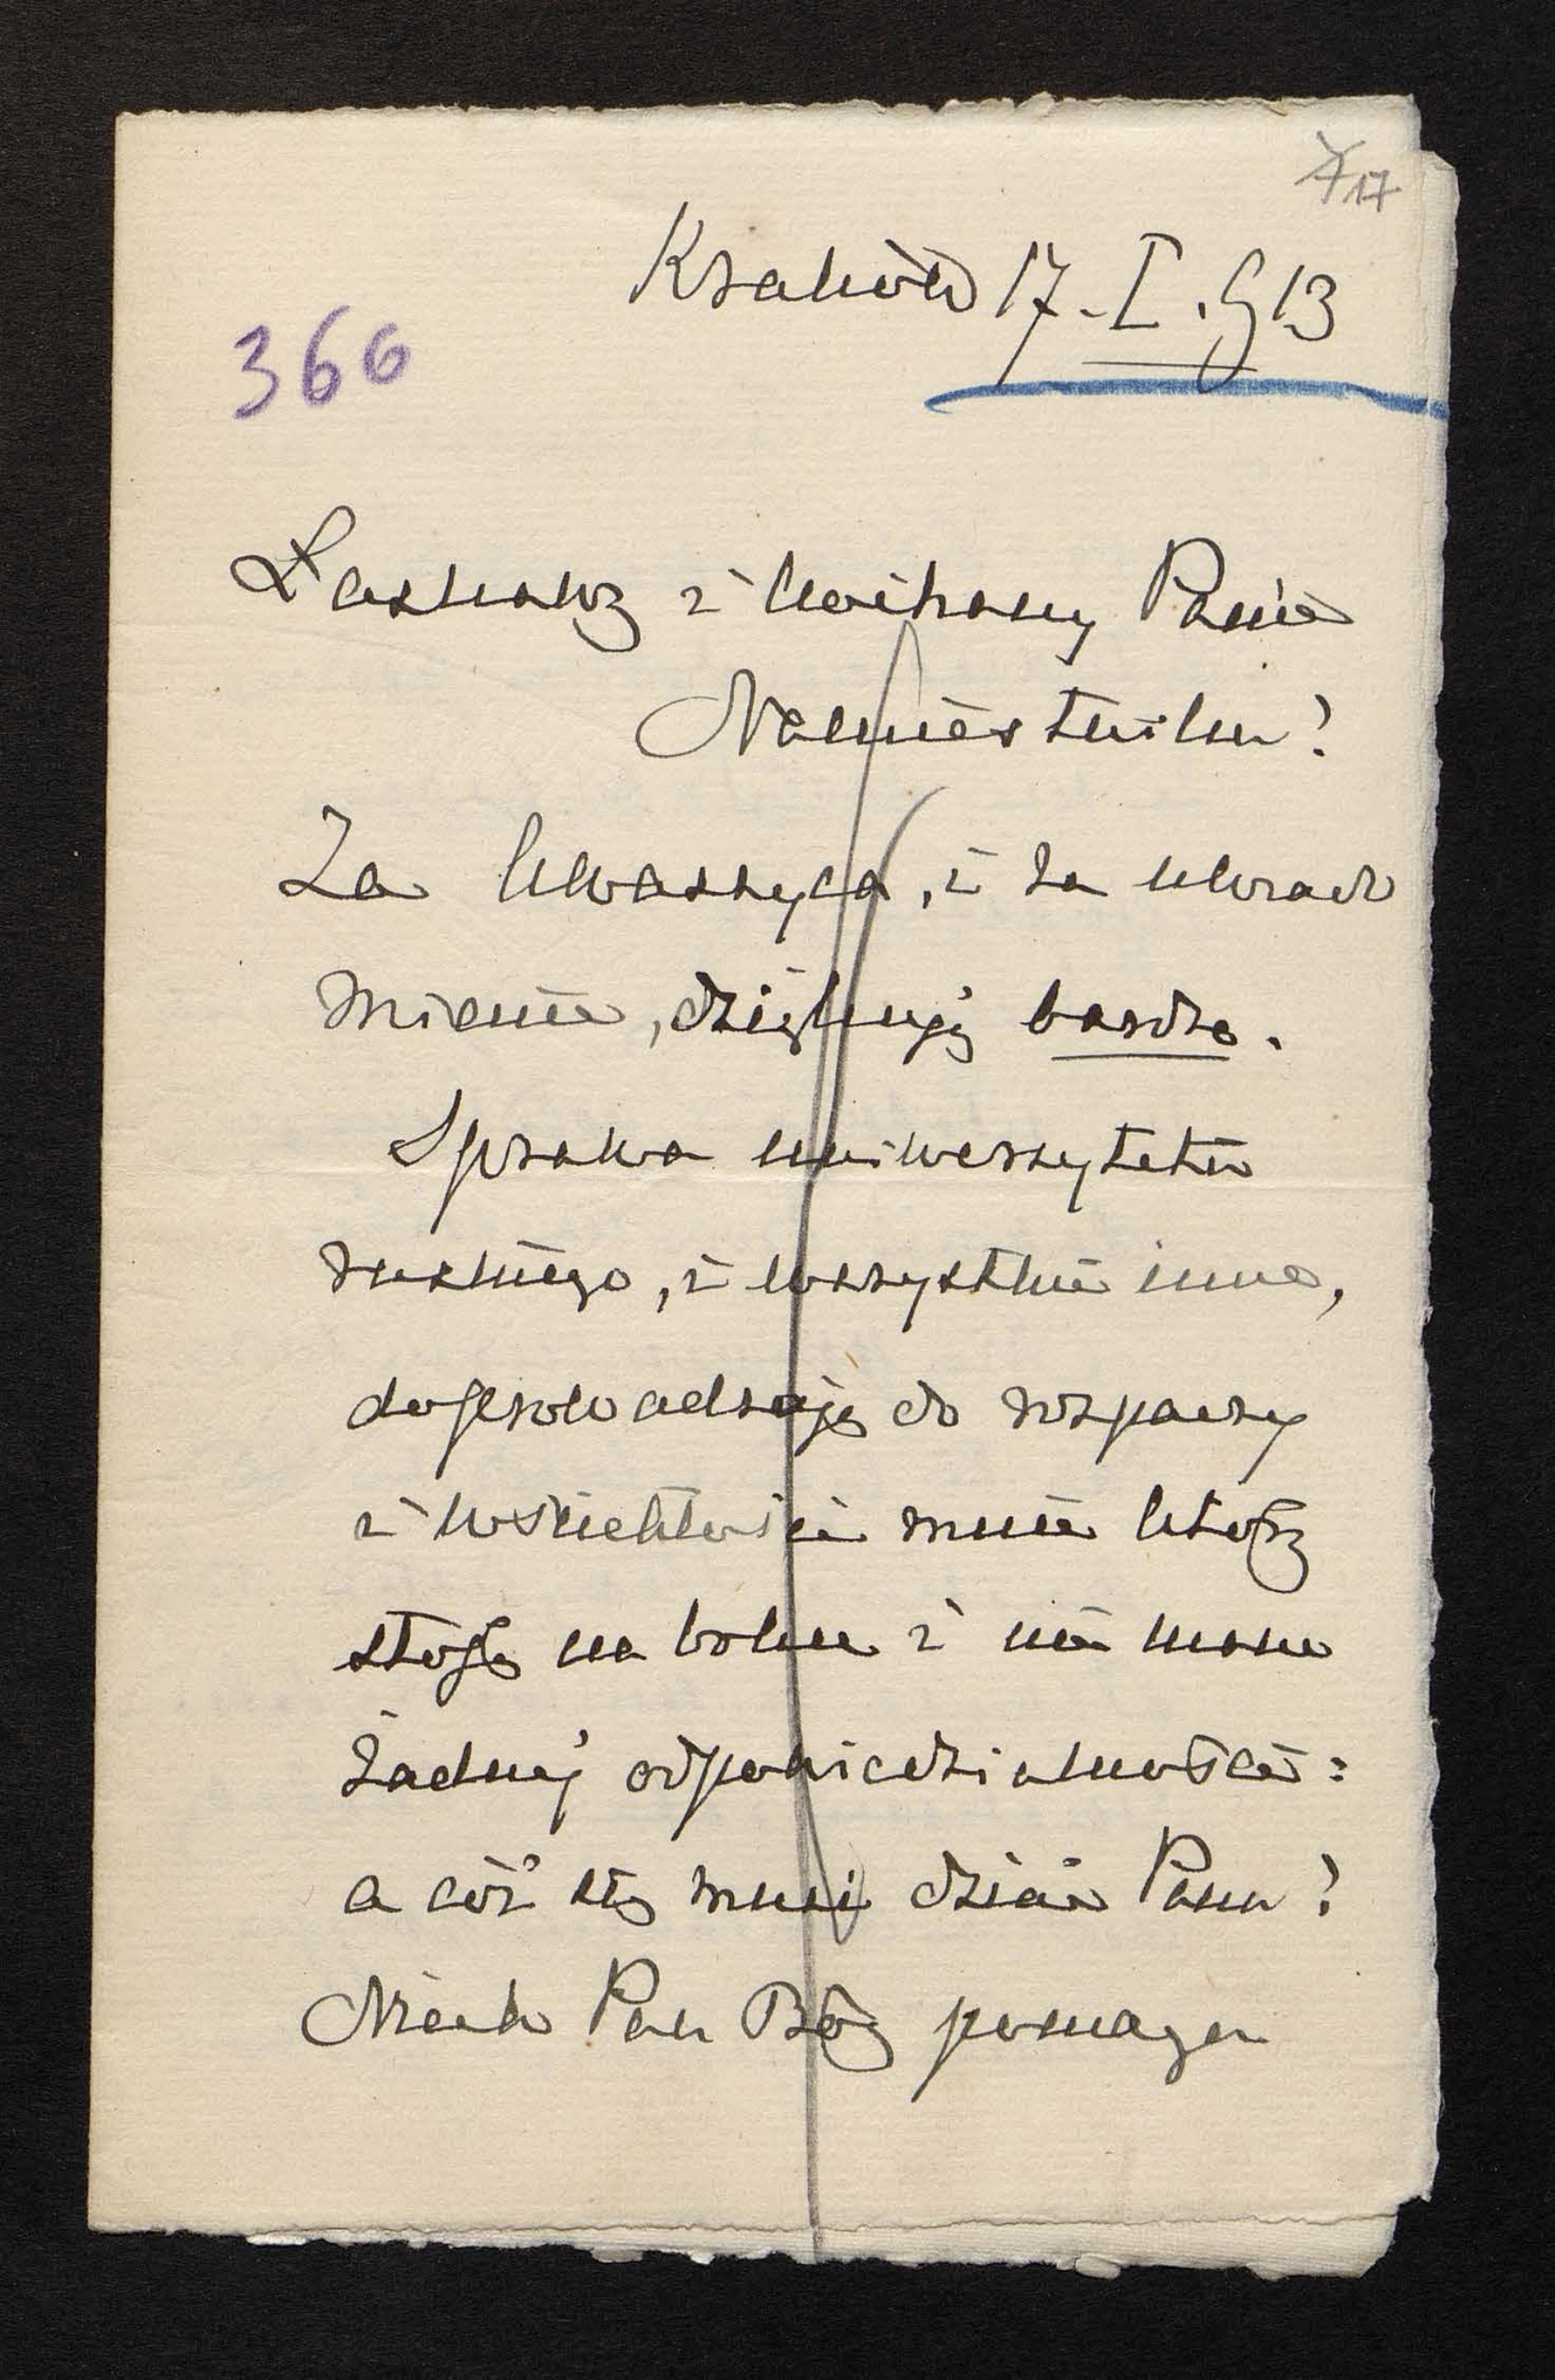 17
Kraków 17.I.913
366
Łaskawy i kochany Panie
Namiestniku!
Za, i za uwiado
mienie, dziękuję bardzo.
Sprawa uniwersytetu
ruskiego, i wszystkie inne,
doprowadzają do rozpaczy
i wściekłości mnie który
stoję na boku i nie mam
żadnej odpowiedzialności:
a cóż się musi dziać Panu?
Niech Pan Bóg pomaga